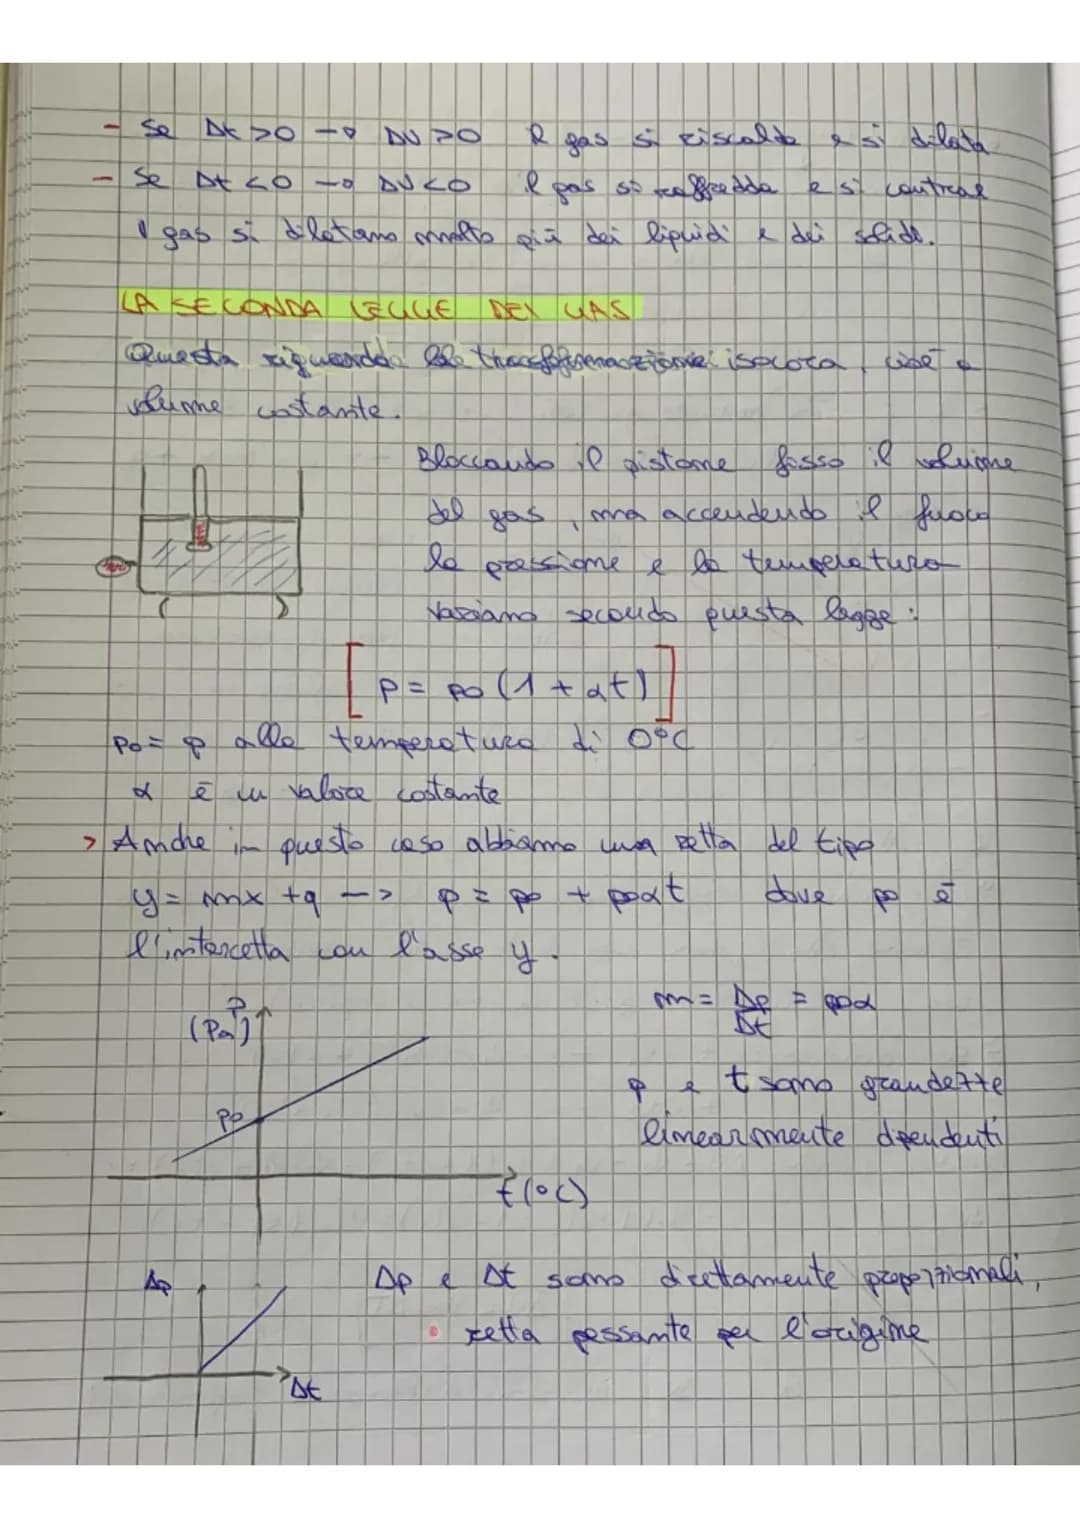 - Se Δt >0 → ΔV >0 Il gas si riscalda e si dilata
- Se Δt <0 → ΔV<0 Il gas si raffredda e si contrae
I gas si dilatano molto più dei liquidi e dei solidi.
LA SECONDA LEGGE DEI GAS
Questa riguarda la trasformazione isocora, cioè a
volume costante.
Bloccando il pistone fisso il volume
del gas, ma accendendo il fuoco
la pressione e la temperatura
variano secondo questa legge:
[p = p0 (1 + αt)]
p0 = p alla temperatura di 0°C
α è un valore costante
> Anche in questo caso abbiamo una retta del tipo
y = mx +q --> p = p0 + p0αt dove p0 è
l'intercetta con l'asse y.
m = Δp/Δt = p0α
P
(Pa)
p e t sono grandezze
p0
linearmente dipendenti
t(°C)
Δp e Δt sono direttamente proporzionali,
Δp
retta passante per l'origine
Δt